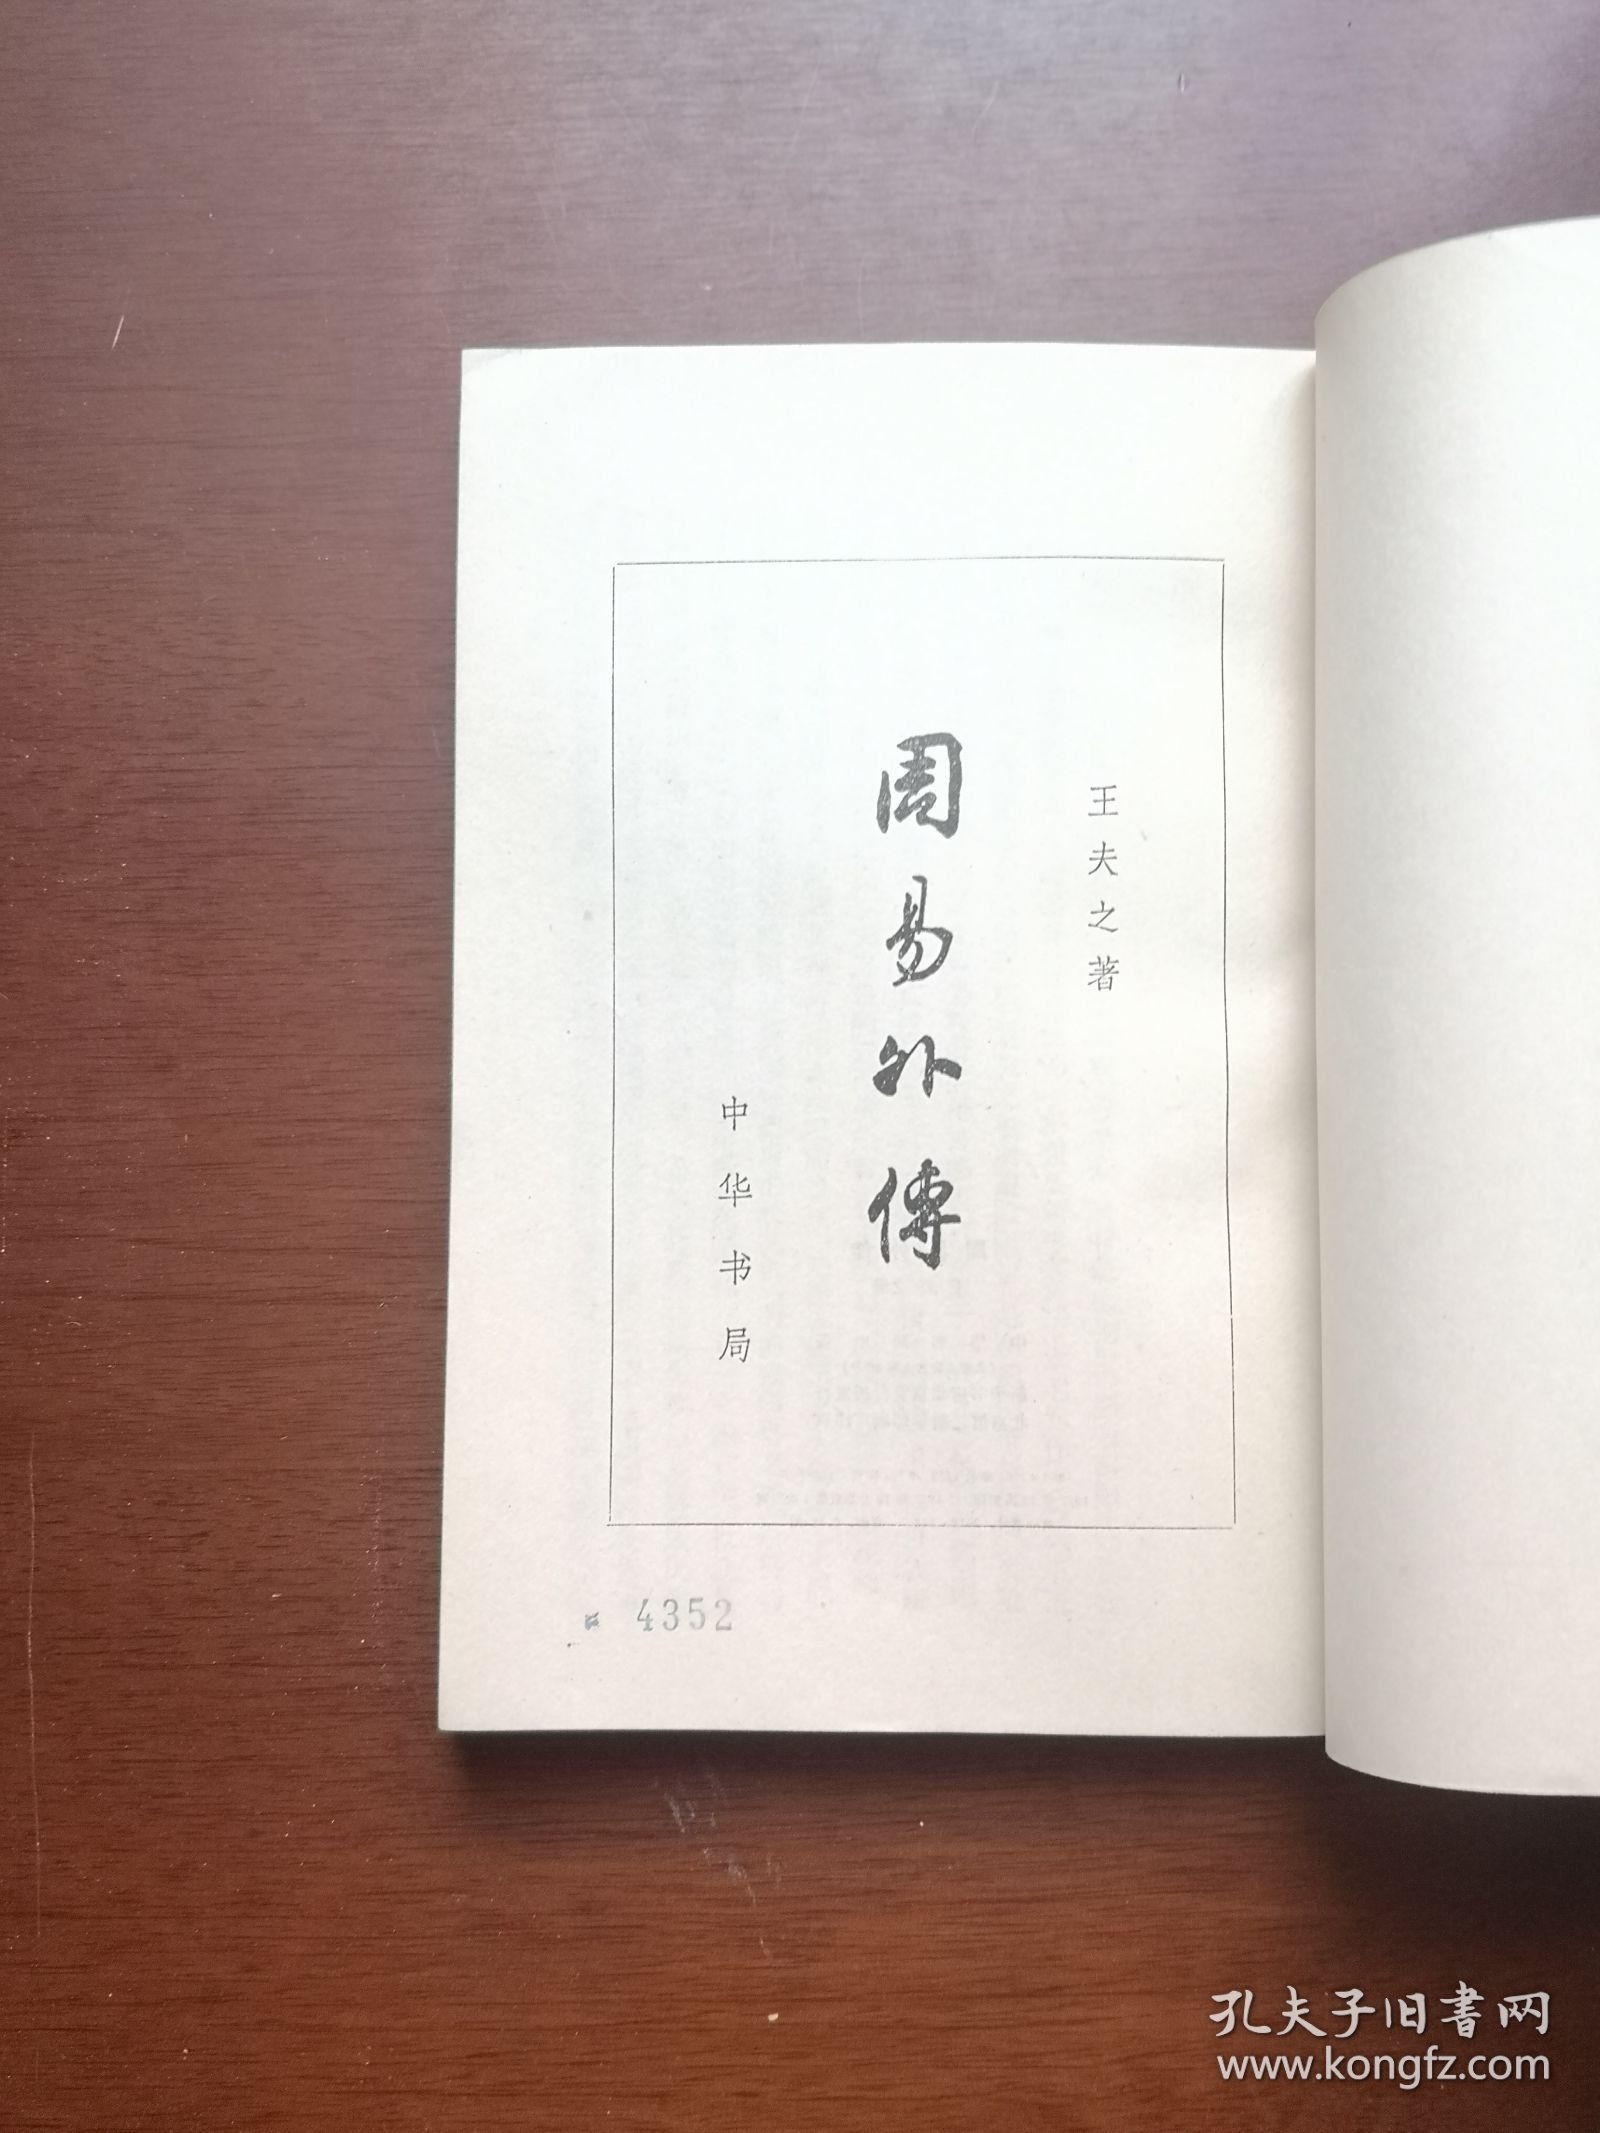 王夫之著
周易外傳
中华书局
4352
孔夫子旧書网
www.kongfz.com